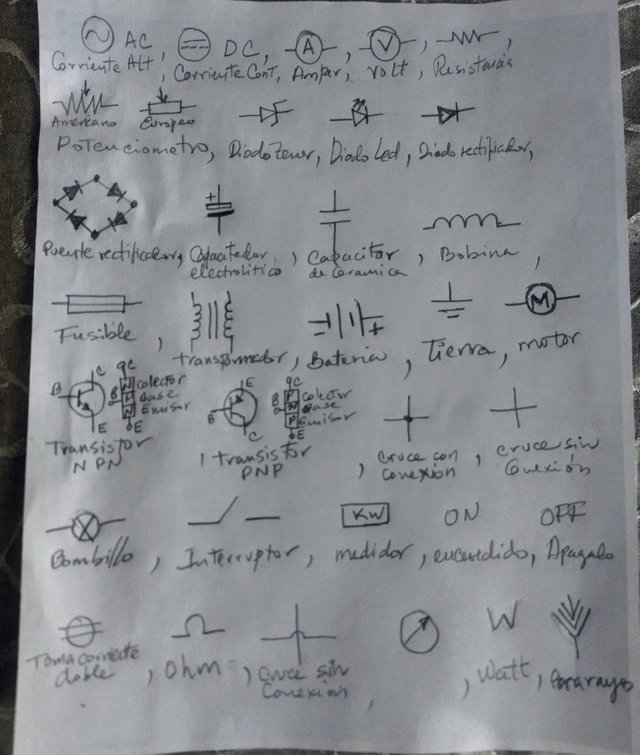 AC, DC, A, V,
Corriente Alt, Corriente Cont, Amper, Volt, Resistencia
Americano Europeo
Potenciometro, Diodo Zener, Diodo Led, Diodo rectificador,
+
Puente rectificador, Capacitor de Ceramica, Bobina,
electrolitico
Fusible, transformador, Bateria, Tierra, motor
- + M
B C E C Colector B Base Emisor E N P N
B E C C Colector B Base Emisor E P N P
Transistor NPN, transistor PNP, Cruce con conexión, cruce sin Conexión
KW ON OFF
Bombillo, Interruptor, medidor, encendido, Apagado
W
Toma corriente doble, Ohm, Cruce sin Conexión, , Watt, Pararayos